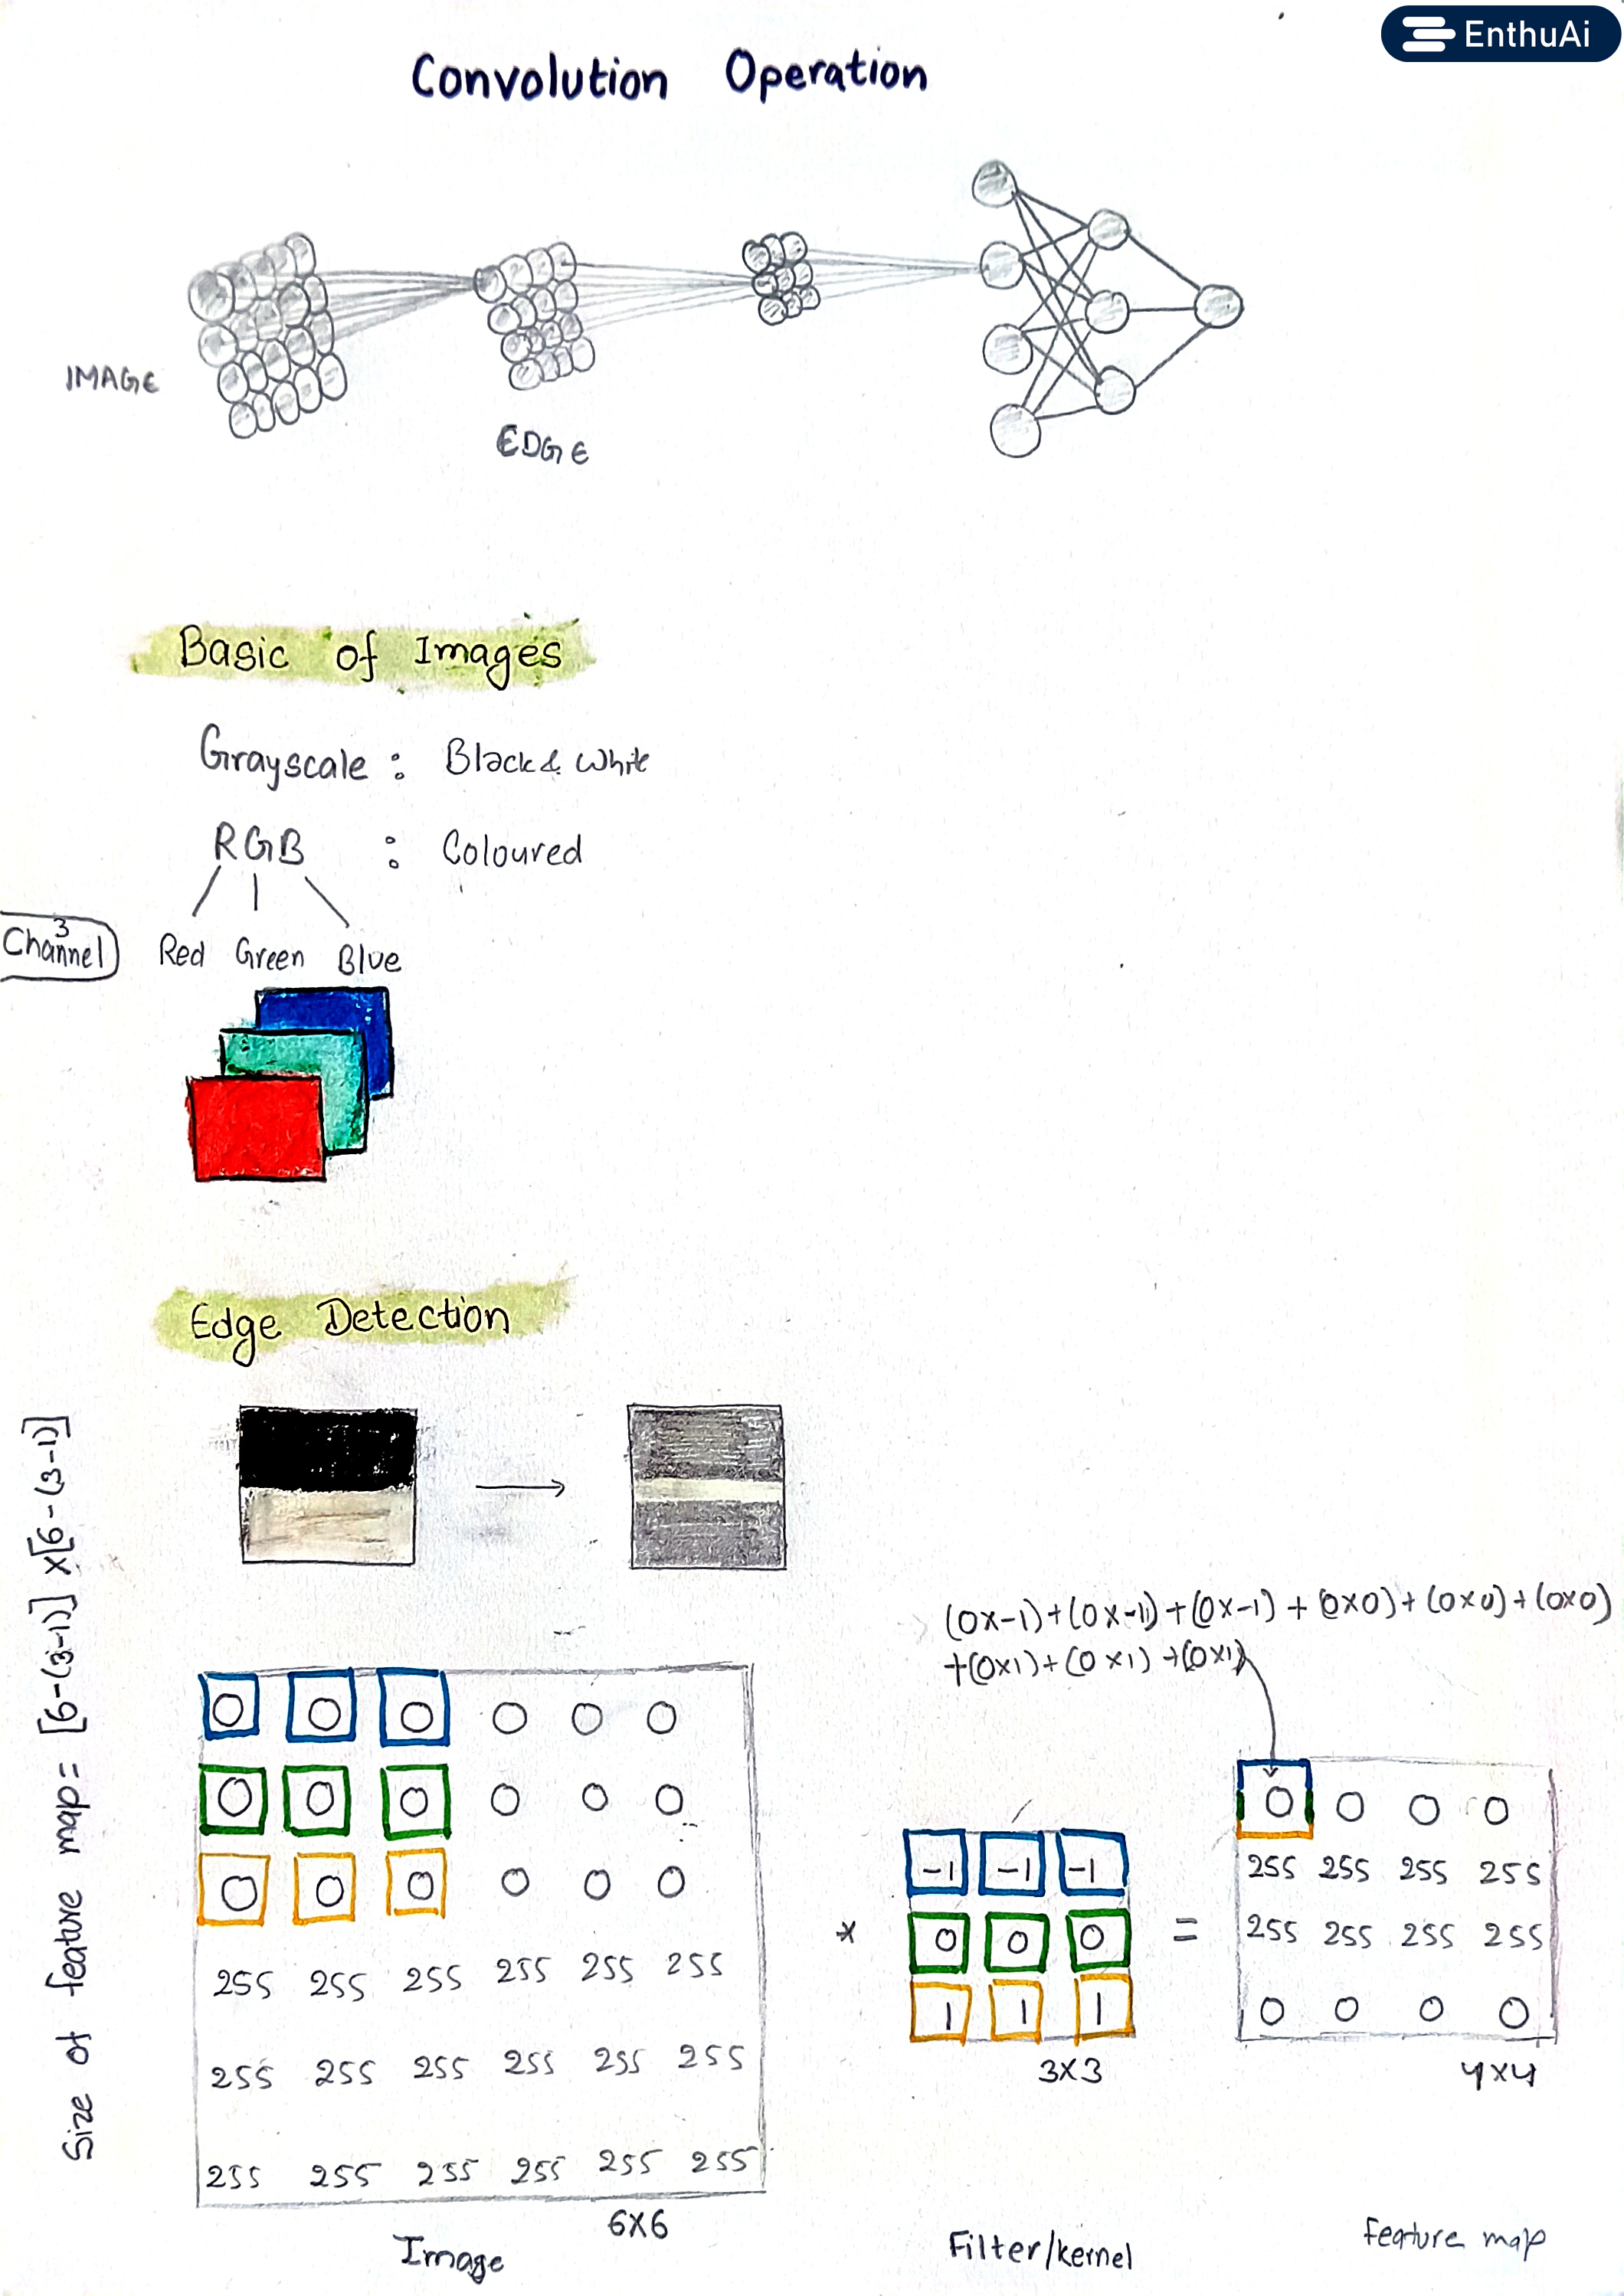 EnthuAi
Convolution Operation
IMAGE
EDGE
Basic of Images
Grayscale : Black & White
RGB : Coloured
3
Channel
Red Green Blue
Edge Detection
Size of feature map = [6-(3-1)] x [6-(3-1)]
(0x-1)+(0x-1)+(0x-1)+(0x0)+(0x0)+(0x0)
+(0x1)+(0x1)+(0x1)
0 0 0 0 0 0
0 0 0 0 0 0
0 0 0 0 0 0
255 255 255 255 255 255
255 255 255 255 255 255
255 255 255 255 255 255
6x6
Image
*
-1 -1 -1
0 0 0
1 1 1
3x3
Filter/kernel
=
0 0 0 0
255 255 255 255
255 255 255 255
0 0 0 0
4x4
Feature map